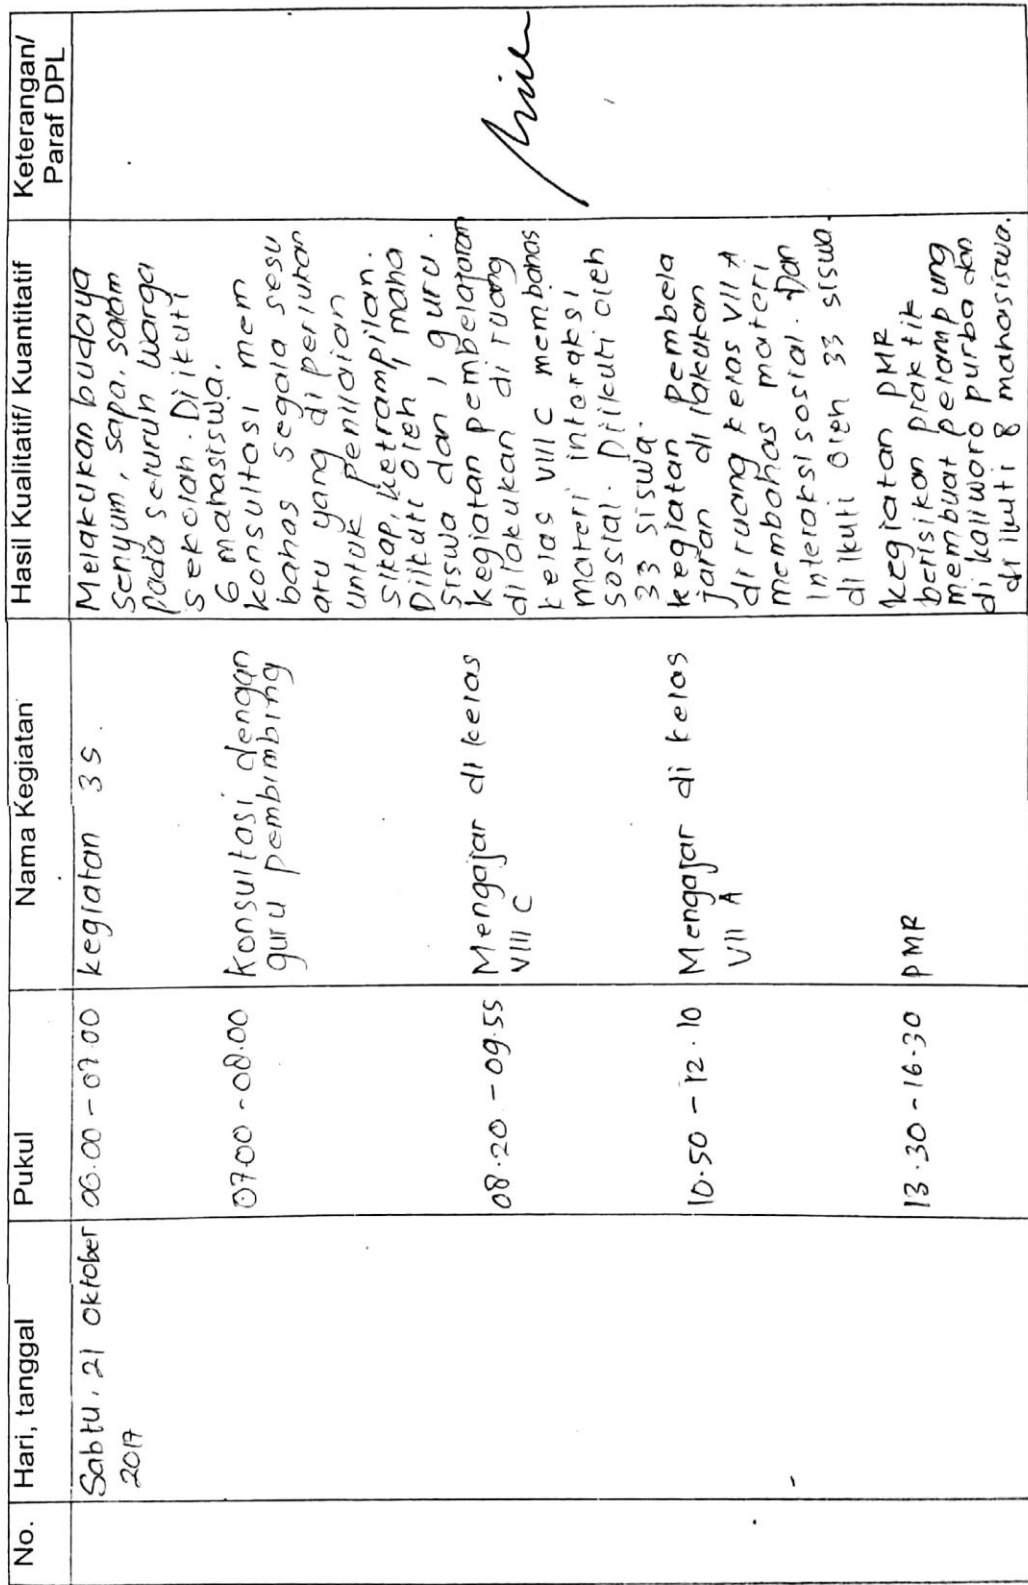 No.
Hari, tanggal
Pukul
Nama Kegiatan
Hasil Kualitatif/ Kuantitatif
Keterangan/
Paraf DPL
Sabtu, 21 Oktober
2017
06.00 - 07.00
kegiatan 3S.
Melakukan budaya
Senyum, sapa, salam
pada seluruh warga
sekolah. Diikuti
6 mahasiswa.
07.00 - 08.00
Konsultasi dengan
guru pembimbing
konsultasi mem
bahas segala sesu
atu yang diperlukan
untuk penilaian
sikap, ketrampilan.
Diikuti oleh 1 maha
siswa dan 1 guru.
08.20 - 09.55
Mengajar di kelas
VIII C
kegiatan pembelajaran
dilakukan di ruang
kelas VIII C membahas
materi interaksi
sosial. Diikuti oleh
33 siswa.
10.50 - 12.10
Mengajar di kelas
VII A
kegiatan pembela
jaran di lakukan
di ruang kelas VII A
membahas materi
interaksi sosial. Dan
diikuti oleh 33 siswa.
13.30 - 16.30
PMR
kegiatan PMR
berisikan praktik
membuat pelampung
di kaliworo purba dan
di ikuti 8 mahasiswa.